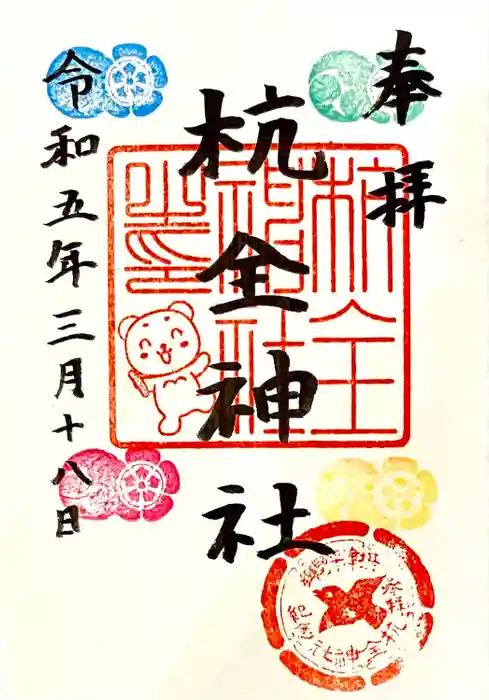 奉拝
杭全神社
令和五年三月十八日
杭全
神社